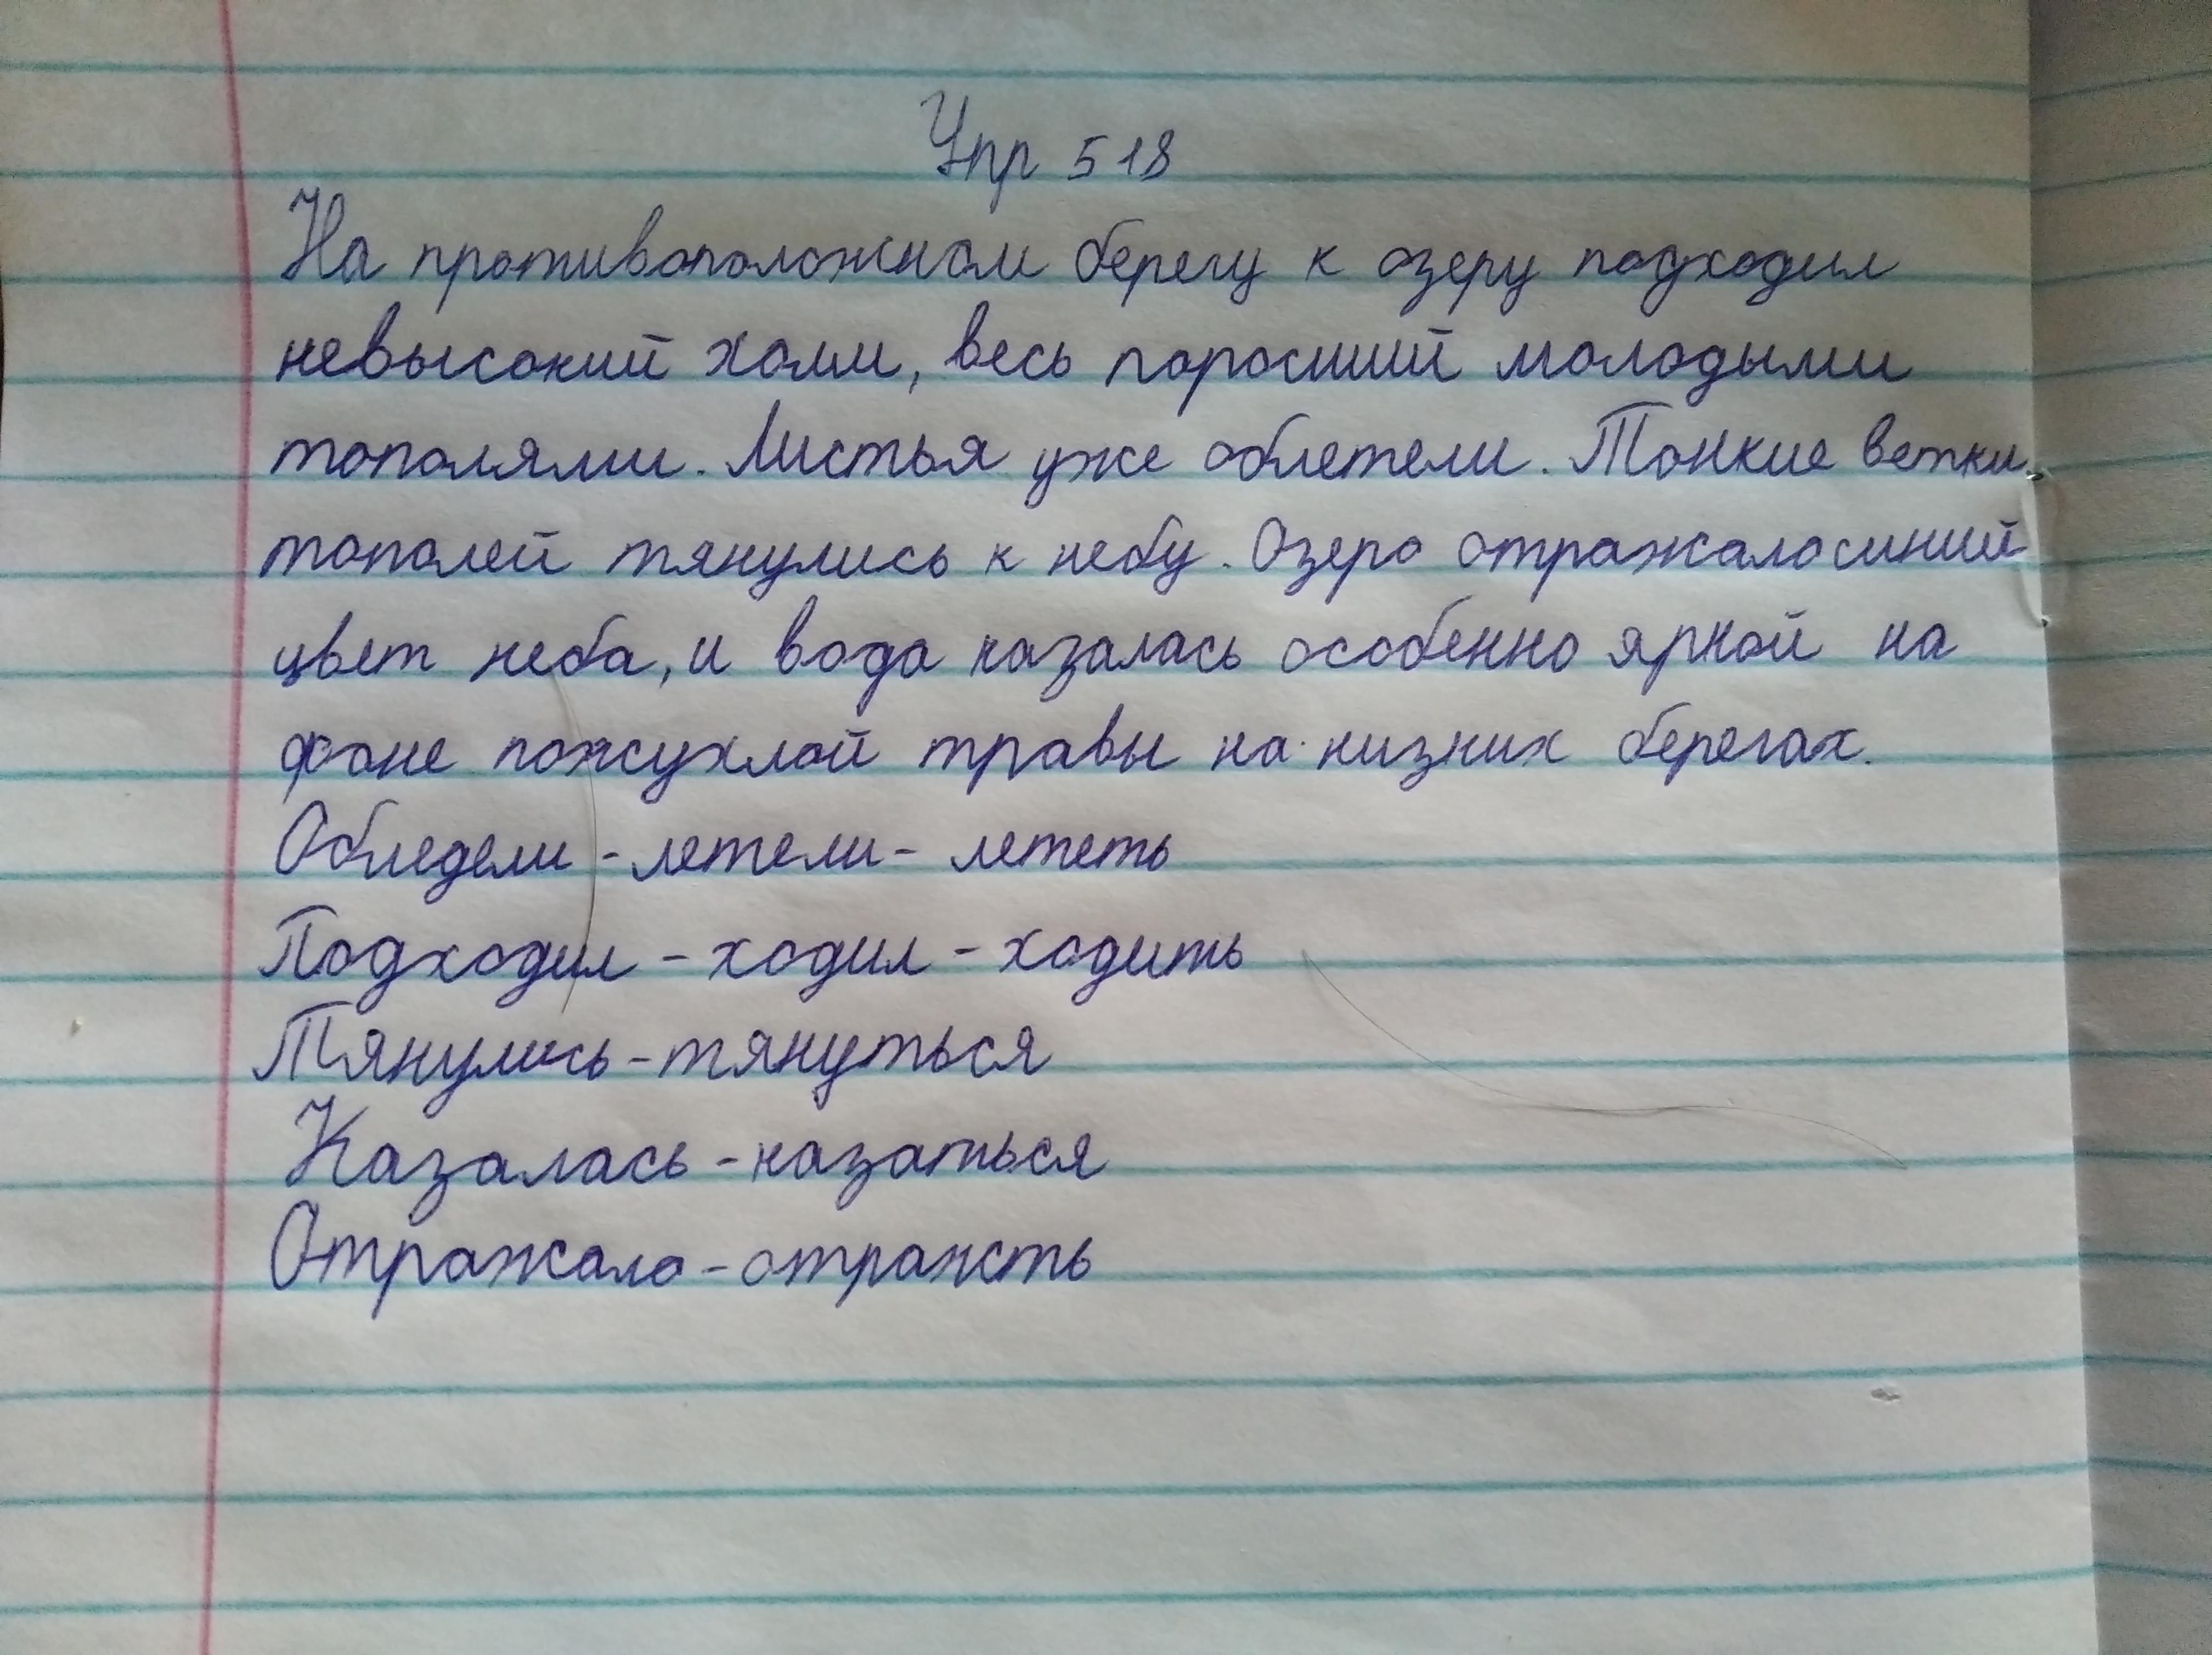 Упр 518
На противоположном берегу к озеру подходил
невысокий холм, весь поросший молодыми
тополями. Листья уже облетели. Тонкие ветки
тополей тянулись к небу. Озеро отражало синий
цвет неба, и вода казалась особенно яркой на
фоне пожухлой травы на низких берегах.
Обледели - летели - лететь
Подходил - ходил - ходить
Тянулись - тянуться
Казалась - казаться
Отражало - отражсть